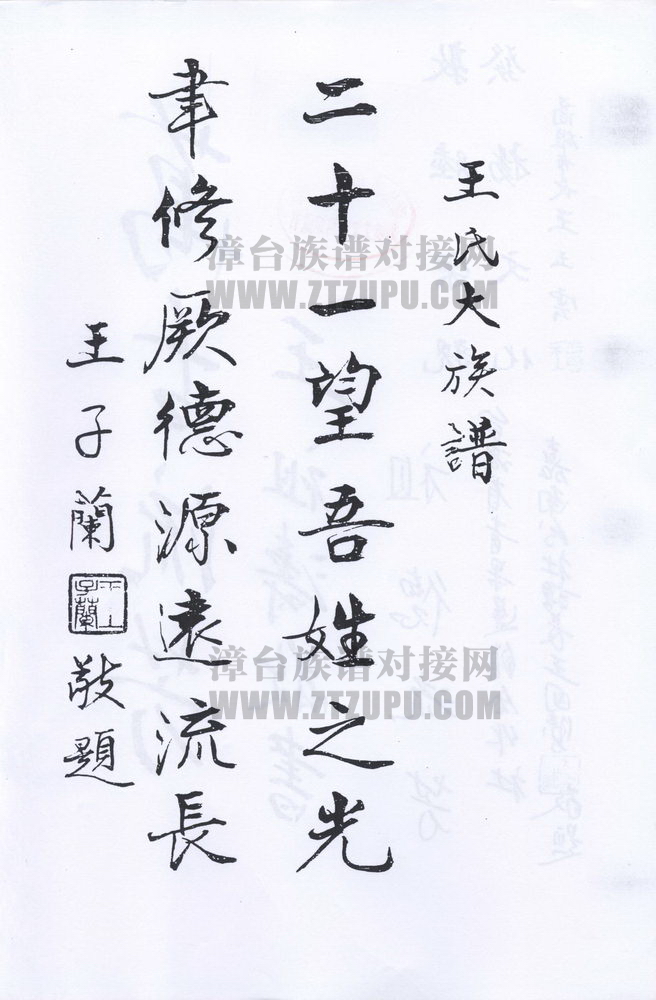 王氏大族譜
二十一望吾姓之光
聿修厥德源遠流長
王子蘭 王子蘭 敬題
漳台族谱对接网
WWW.ZTZUPU.COM
漳台族谱对接网
WWW.ZTZUPU.COM